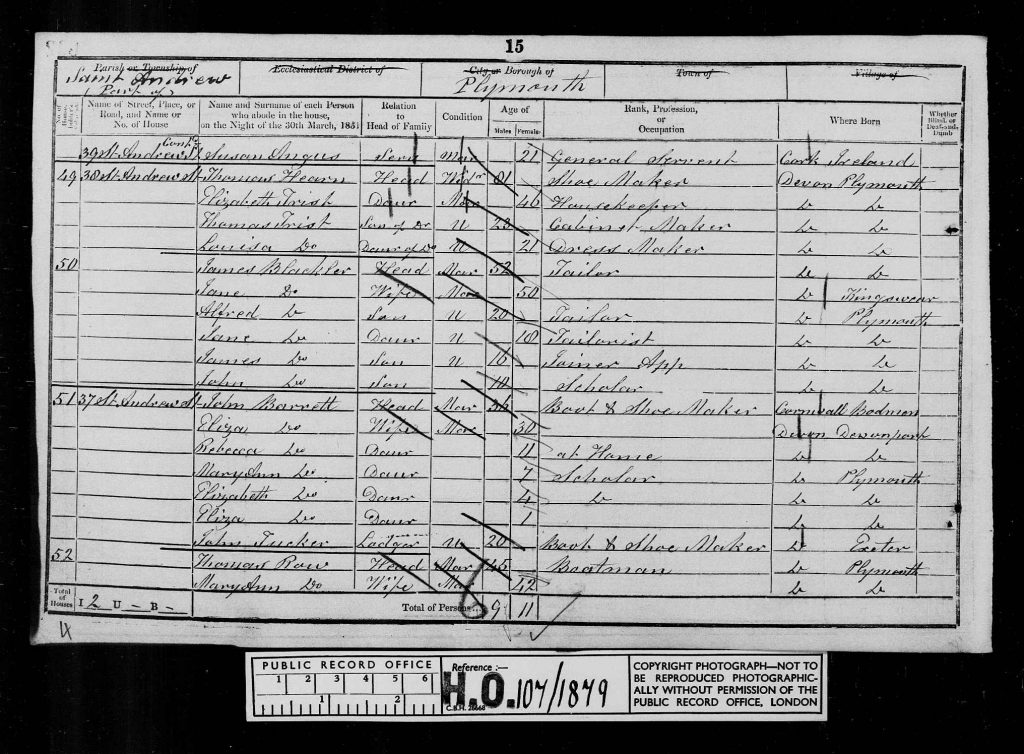 15
Parish or Township of Ecclesiastical District of City or Borough of Town of Village of
Saint Andrew Plymouth
(Part of)
Name of Street, Place, or Road, and Name or No. of House
Name and Surname of each Person who abode in the house, on the Night of the 30th March, 1851
Relation to Head of Family
Condition
Age of
Males Females
Rank, Profession, or Occupation
Where Born
Whether Blind, or Deaf-and-Dumb
39 St. Andrew St Susan Angus Serv Mar 21 General Servent Cork Ireland
49 38 St Andrew St Thomas Hearn Head Widr 81 Shoe Maker Devon Plymouth
Elizabeth Trist Daur Mar 46 Housekeeper Do Do
Thomas Trist Son of Do U 23 Cabinet Maker Do Do
Louisa Do Daur of Do U 21 Dress Maker Do Do
50 James Blackler Head Mar 52 Tailor Do Do
Jane Do Wife Mar 50 Do Kingswear
Alfred Do Son U 20 Tailor Do Plymouth
Jane Do Daur U 18 Tailorist Do Do
James Do Son U 16 Joiner App Do Do
John Do Son 10 Scholar Do Do
51 37 St Andrew St John Barrett Head Mar 36 Boot & Shoe Maker Cornwall Bodmon
Eliza Do Wife Mar 30 Devon Devonport
Rebecca Do Daur 11 at Home Do Do
Mary Ann Do Daur 7 Scholar Do Plymouth
Elizabeth Do Daur 4 Do Do Do
Eliza Do Daur 1 Do Do
John Tucker Lodger U 20 Boot & Shoe Maker Do Exeter
52 Thomas Row Head Mar 45 Boatman Do Plymouth
Mary Ann Do Wife Mar 42 Do Do
Total of Houses I 2 U - B - Total of Persons 9 11
PUBLIC RECORD OFFICE
1 2 3 4 5 6
1 2
Reference :—
H.O. 107/1879
C.R.H. 28668
COPYRIGHT PHOTOGRAPH—NOT TO
BE REPRODUCED PHOTOGRAPHIC-
ALLY WITHOUT PERMISSION OF THE
PUBLIC RECORD OFFICE, LONDON